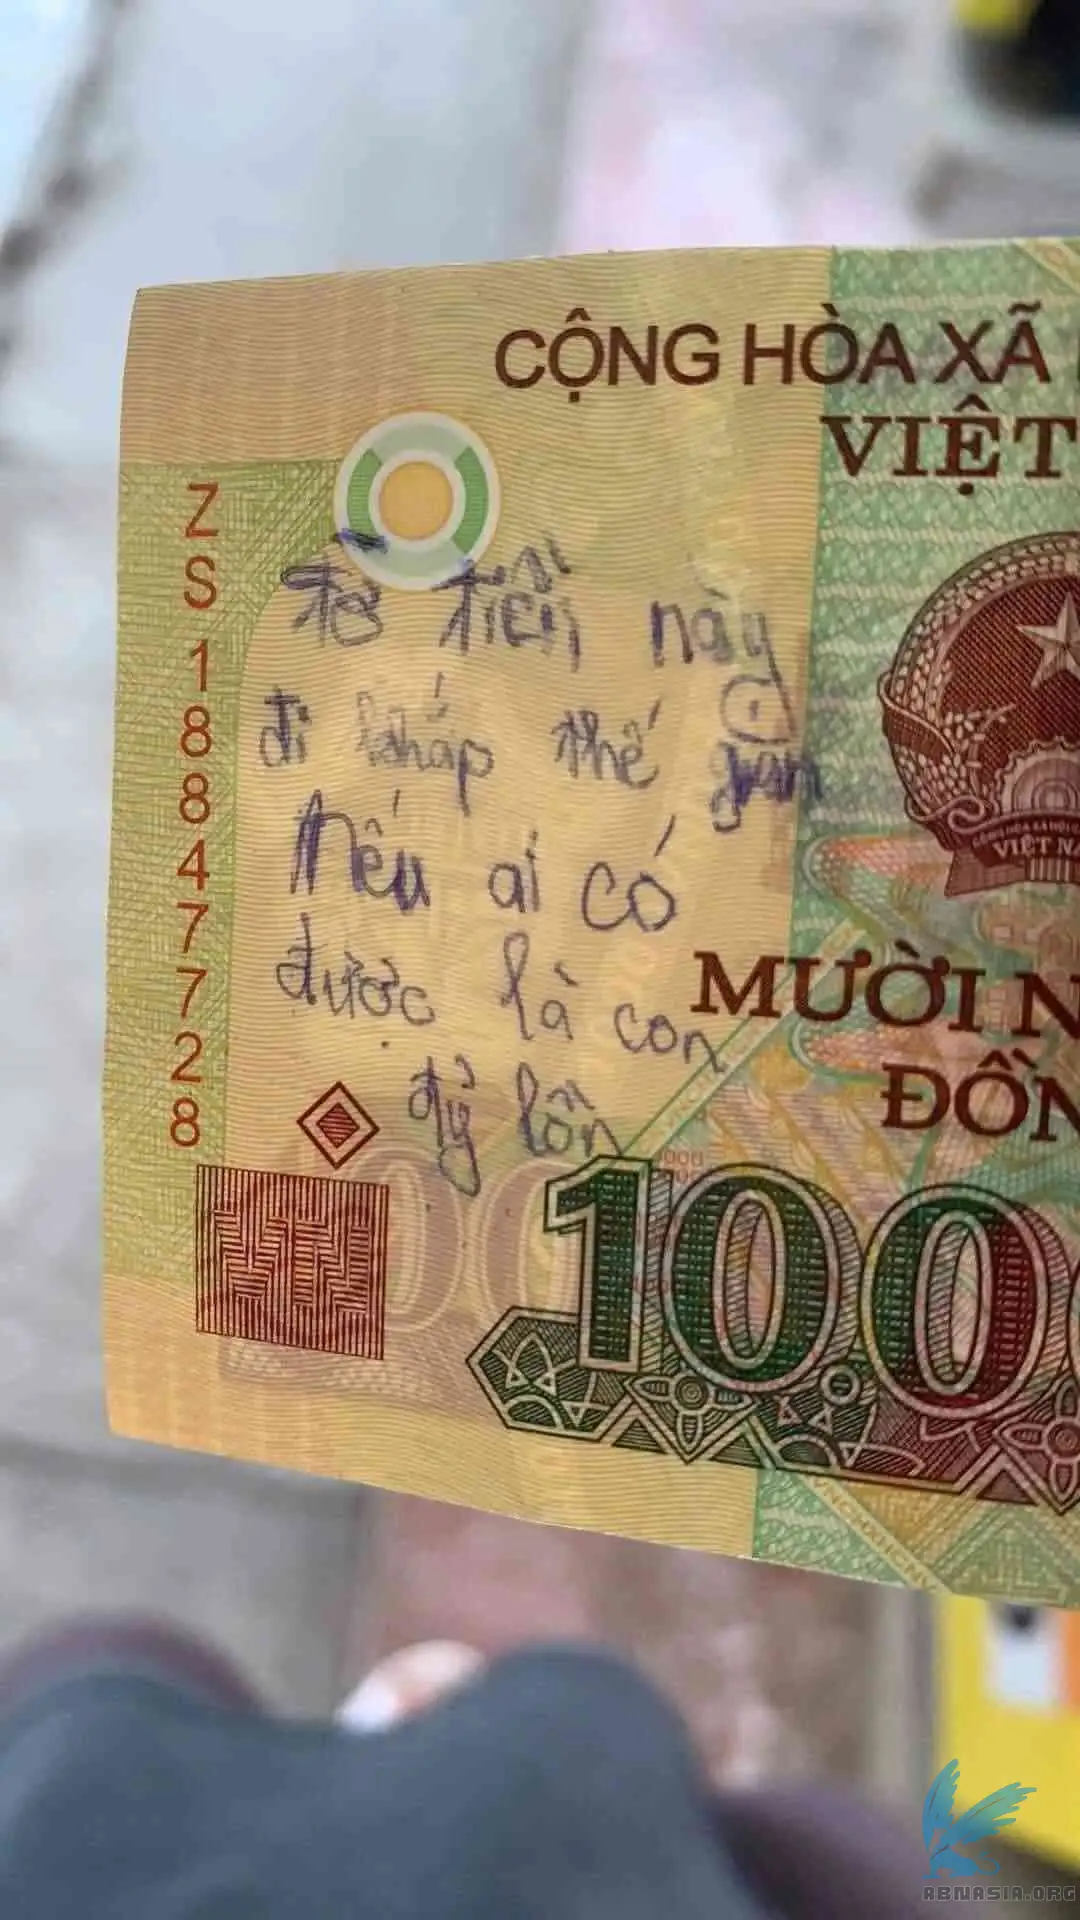 CỘNG HÒA XÃ
VIỆT
ZS18847728
tờ tiền này
đi kháp thế gian
Nếu ai có
được là con
đỷ lồn
VIỆT NA
MƯỜI N
ĐỒN
10.0
VN
ABNASIA.ORG